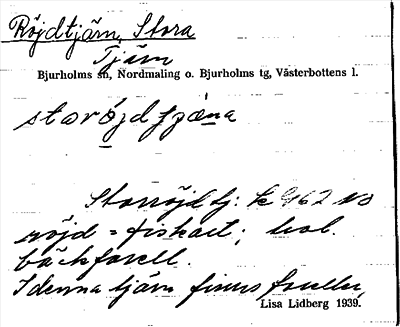 Röjdtjärn, Stora
Tjärn
Bjurholms sn, Nordmaling o. Bjurholms tg, Västerbottens l.
Storröjdtj: k 962 no
röjd = fiskart; bol.
bäckforell.
I denna tjärn finns foreller
Lisa Lidberg 1939.